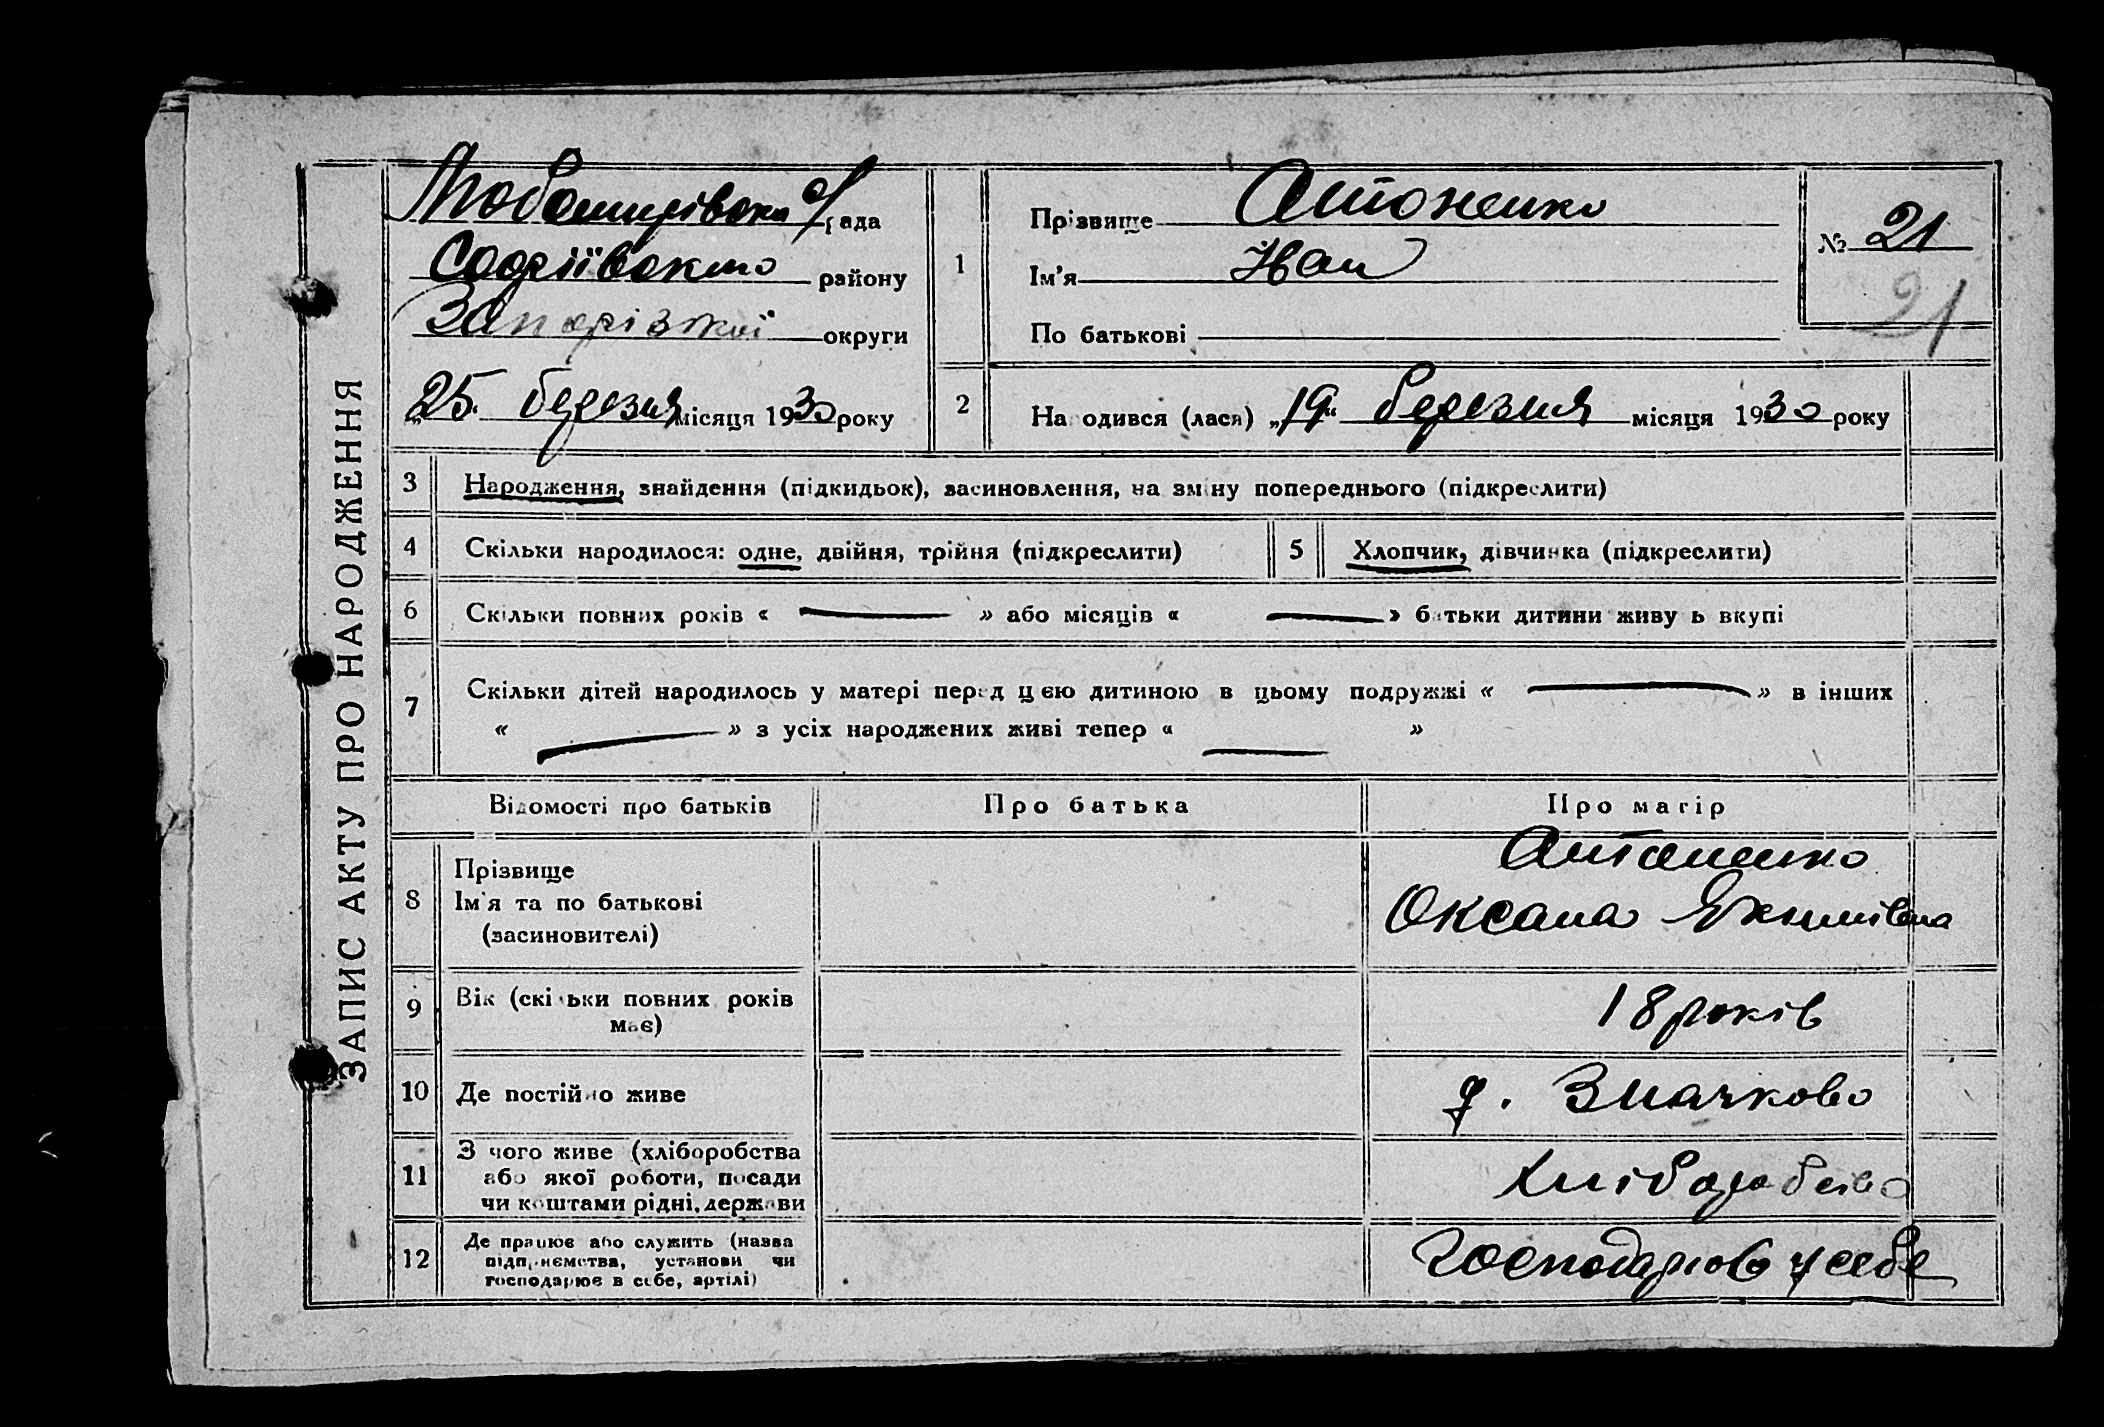 ЗАПИС АКТУ ПРО НАРОДЖЕННЯ
с/рада
Софіївського району
Запорізької округи
„25“ березня місяця 1930 року
1
Прізвище Антоненко
Ім’я Іван
По батькові
№ 21
21
2
Народився (лася) „19“ березня місяця 1930 року
3 Народження, знайдення (підкидьок), засиновлення, на зміну попереднього (підкреслити)
4 Скільки народилося: одне, двійня, трійня (підкреслити)
5 Хлопчик, дівчинка (підкреслити)
6 Скільки повних років « — » або місяців « — » батьки дитини живуть вкупі
7 Скільки дітей народилось у матері перед цією дитиною в цьому подружжі « — » в інших
« — » з усіх народжених живі тепер « — »
Відомості про батьків Про батька Про матір
8 Прізвище
Ім’я та по батькові
(засиновителі)
Антоненко
Оксана Якимівна
9 Вік (скільки повних років
має)
18 років
10 Де постійно живе
д. Значково
11 З чого живе (хліборобства
або якої роботи, посади
чи коштами рідні, держави
Хліборобство
12 Де працює або служить (назва
підприємства, установи чи
господарює в себе, артілі)
господарює у себе